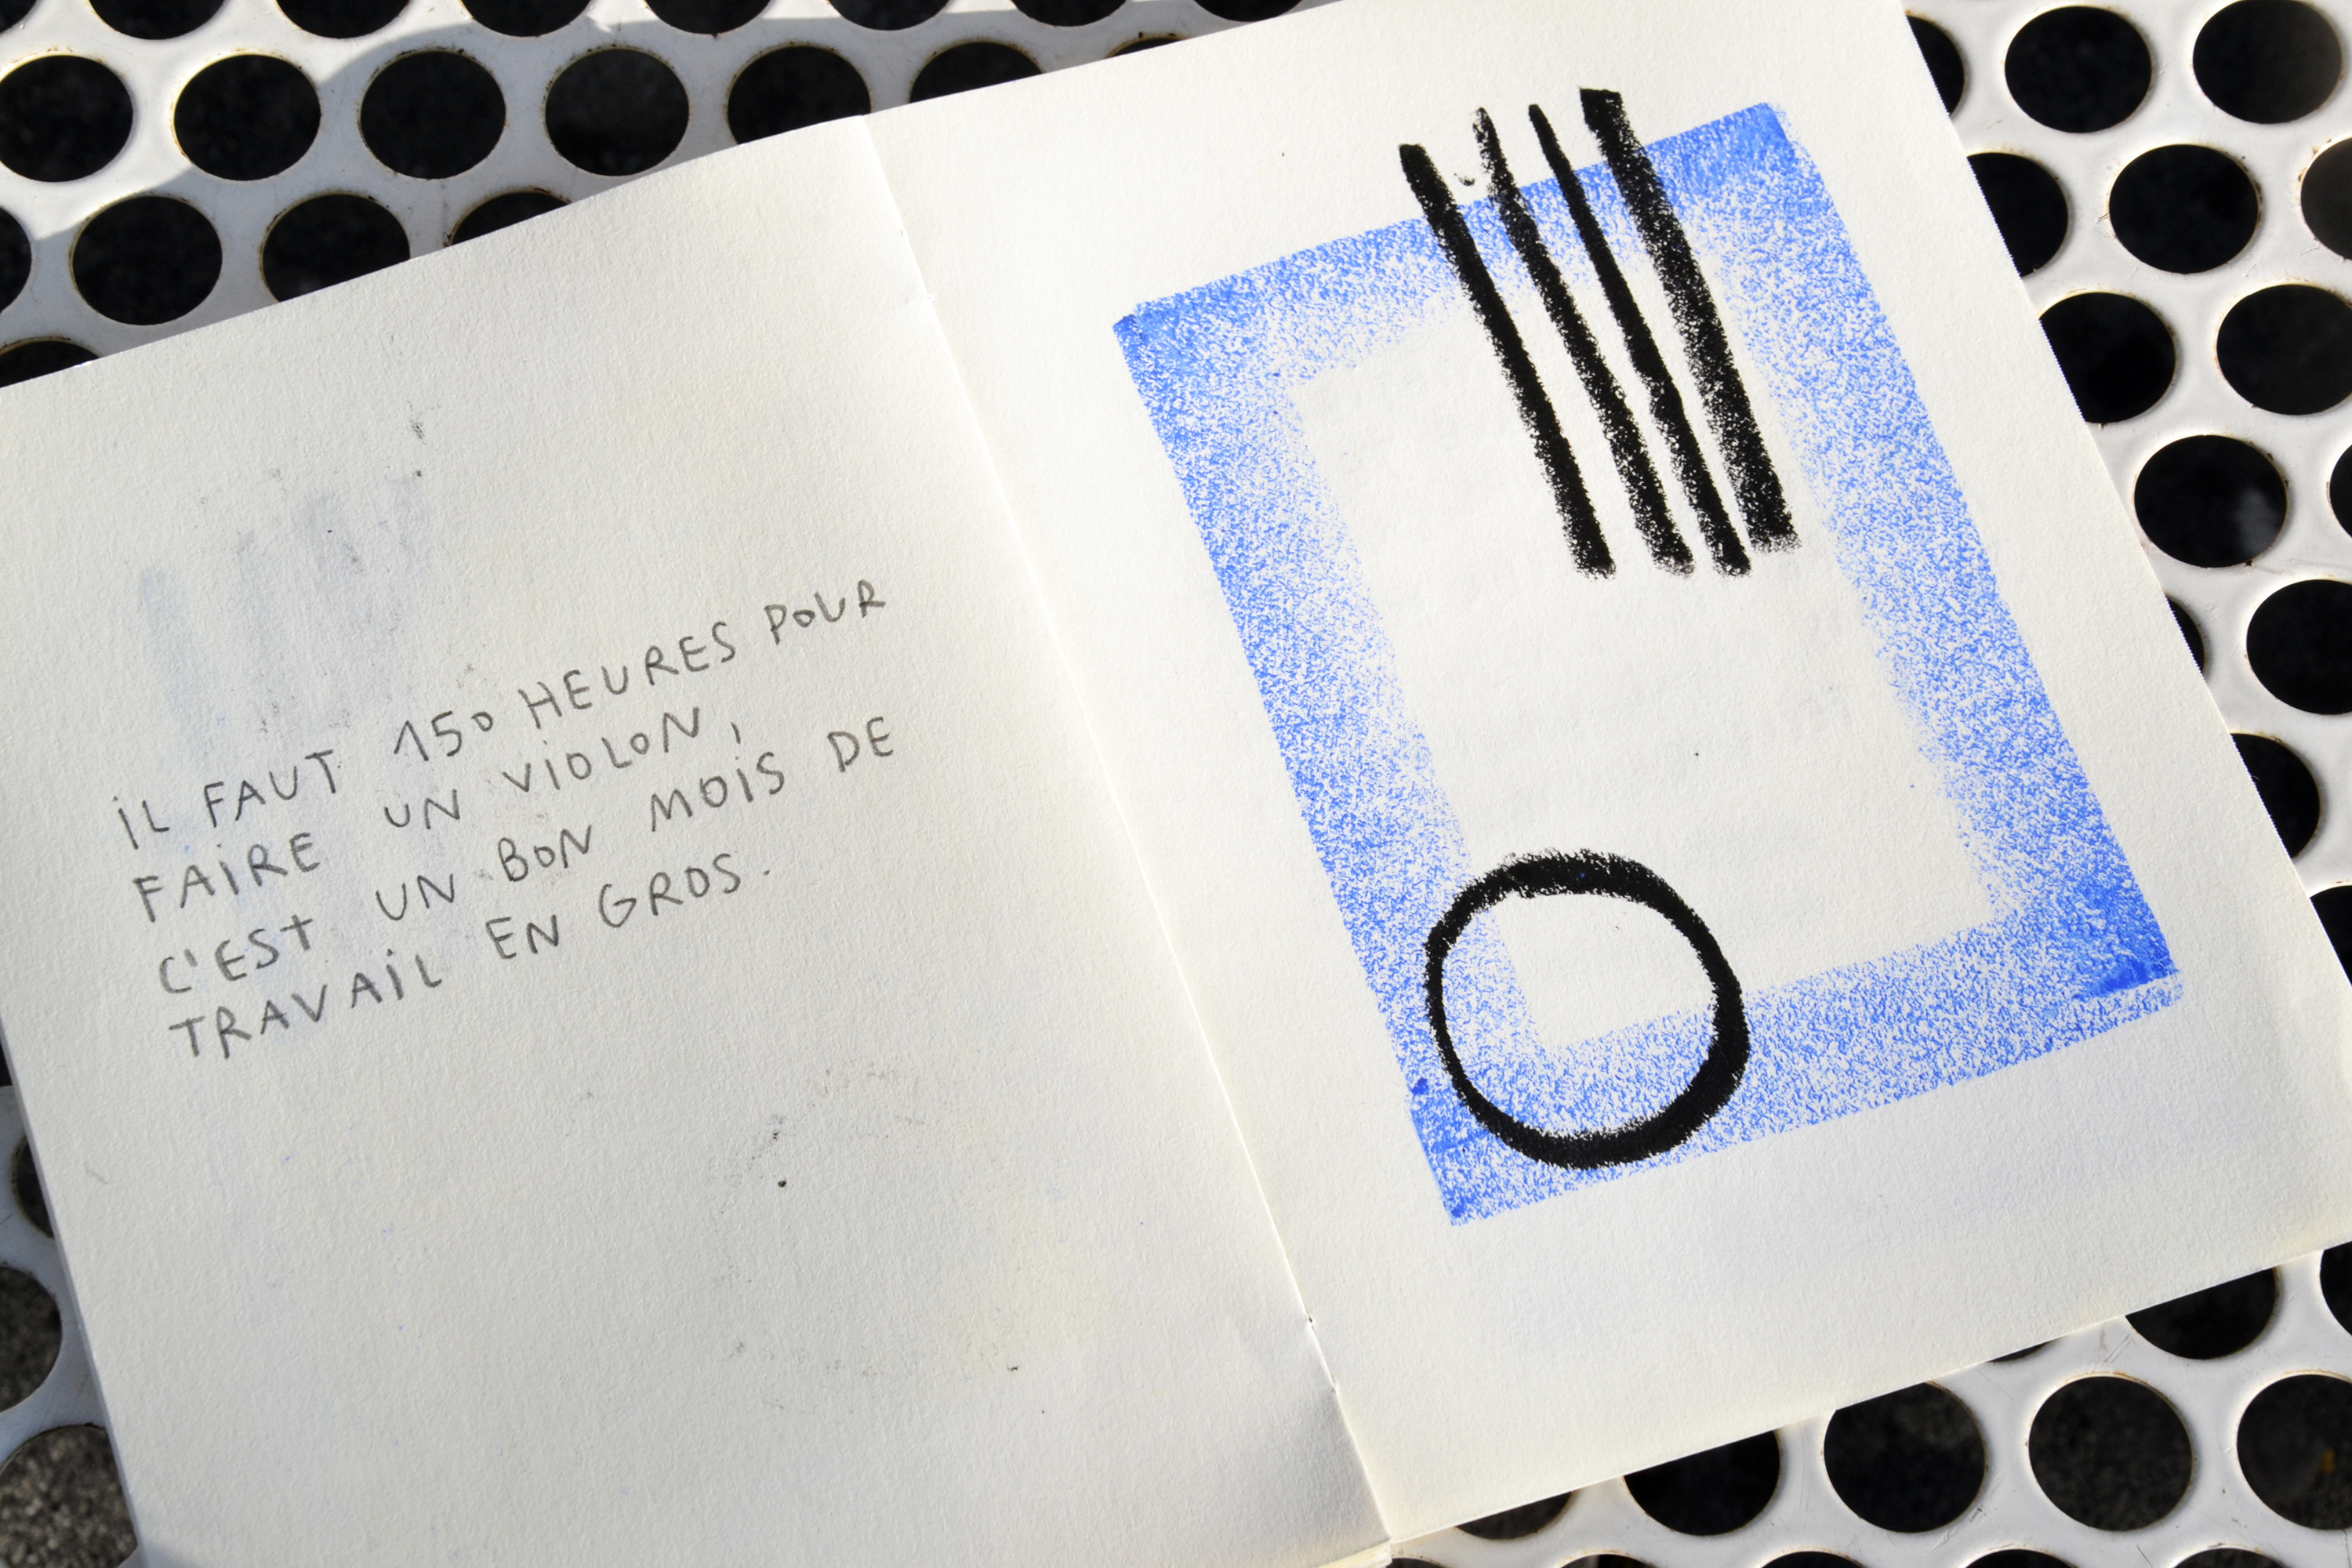 iL FAUT 150 HEURES POUR
FAiRE UN ViOLON,
C'EST UN BON MOiS DE
TRAVAiL EN GROS.